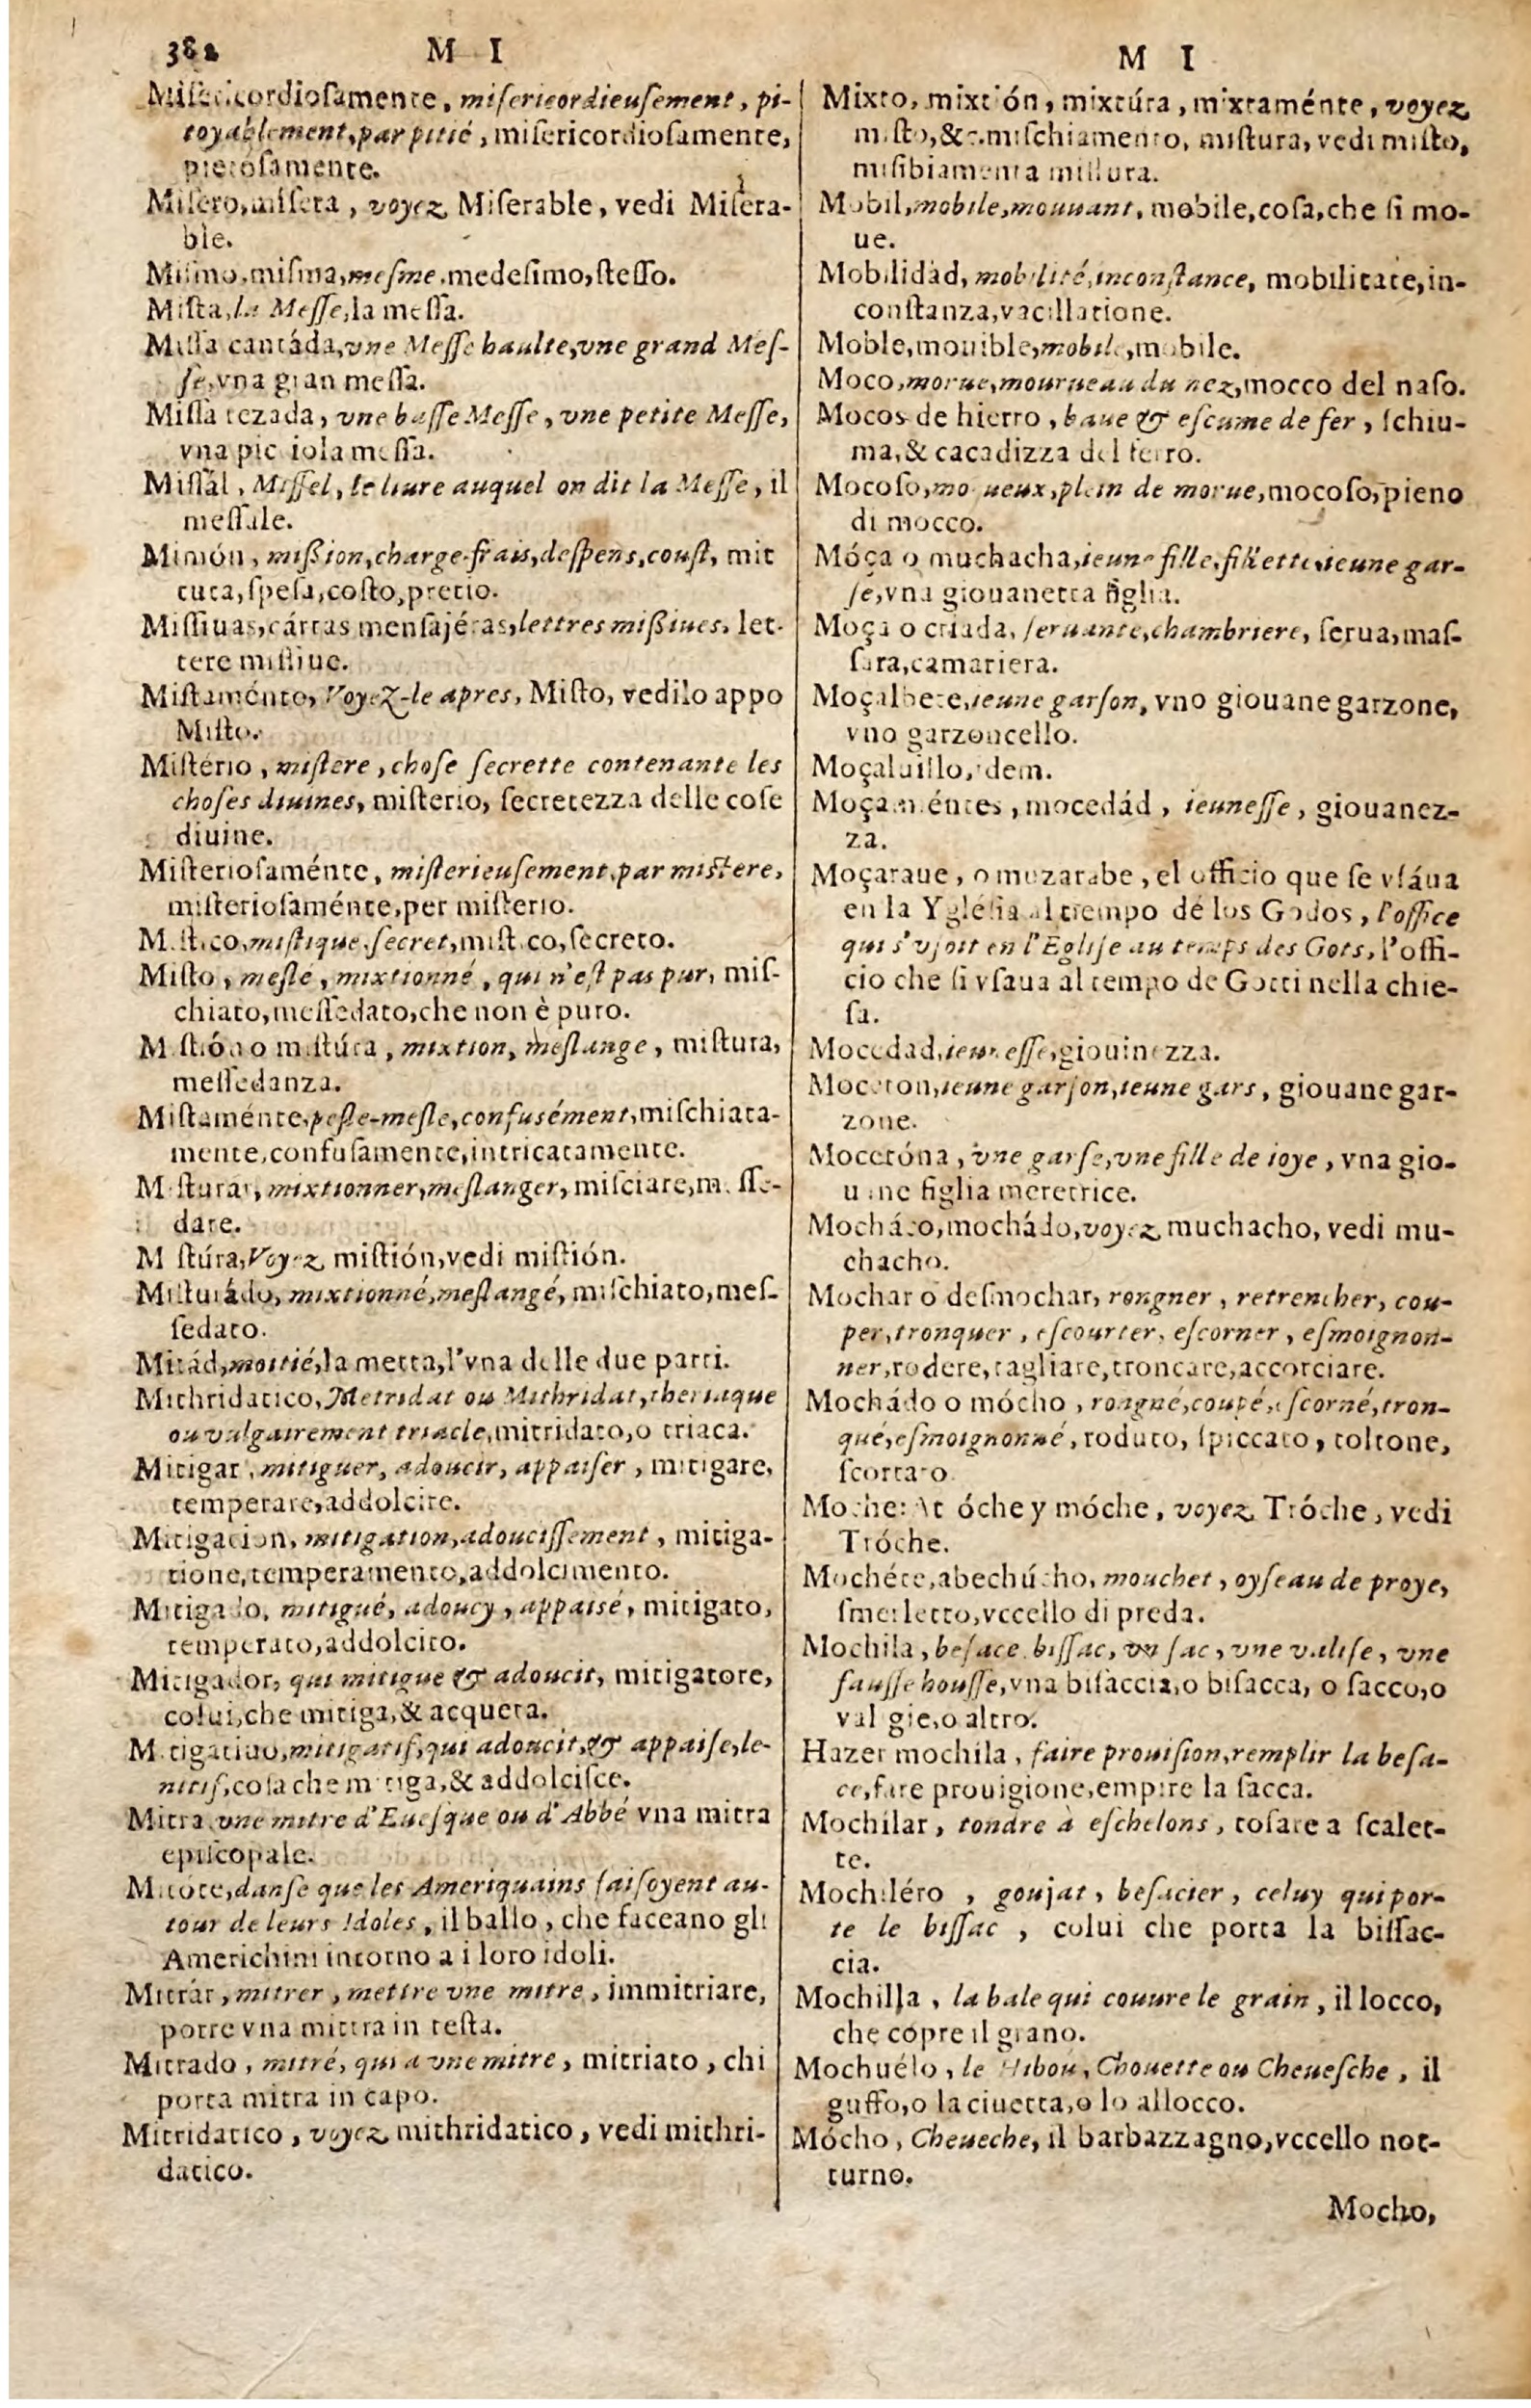 382 M I
Misericordiosamente, misericordieusement, pi-
toyablement, par pitié, misericordiosamente,
pietosamente.
Misero, misera, voyez Miserable, vedi Misera-
ble.
Mismo, misma, mesme, medesimo, stesso.
Missa, la Messe, la messa.
Missa cantáda, vne Messe haulte, vne grand Mes-
se, vna gran messa.
Missa rezada, vne basse Messe, vne petite Messe,
vna pic iola messa.
Missál, Missel, le liure auquel on dit la Messe, il
messale.
Missión, mission, charge, frais, despens, coust, mit
tuta, spesa, costo, precio.
Missiuas, cártas mensajéras, lettres missiues, let-
tere missiue.
Mistaménte, Voyez-le apres, Misto, vedilo appo
Misto.
Misterio, mistere, chose secrette contenante les
choses diuines, misterio, secretezza delle cose
diuine.
Misteriosaménte, misterieusement, par mistere,
misteriosaménte, per misterio.
Mistico, mistique, secret, mistico, secreto.
Misto, mesle, mixtionné, qui n'est pas pur, mis-
chiato, messedato, che non è puro.
Mistión o mistúra, mixtion, meslange, mistura,
messedanza.
Mistaménte, pesle-mesle, confusément, mischiata-
mente, confusamente, intricatamente.
Misturar, mixtionner, meslanger, misciare, messe-
dare.
Mistúra, Voyez mistión, vedi mistión.
Misturádo, mixtionné, meslangé, mischiato, mes-
sedato.
Mitád, moitié, la metta, l'vna delle due parti.
Mithridatico, Metridat ou Mithridat, theriaque
ou vulgairement triacle, mitridato, o triaca.
Mitigar, mitiguer, adoucir, appaiser, mitigare,
temperare, addolcire.
Mitigacion, mitigation, adoucissement, mitiga-
tione, temperamento, addolcimento.
Mitigado, mitigué, adoucy, appaisé, mitigato,
temperato, addolcito.
Mitigador, qui mitigue & adoucit, mitigatore,
colui, che mitiga, & acqueta.
Mitigatiuo, mitigatif, qui adoucit, & appaise, le-
nitif, cosa che mitiga, & addolcisce.
Mitra, vne mitre d'Euesque ou d'Abbé vna mitra
episcopale.
Mitote, danse que les Ameriquains faisoyent au-
tour de leurs Idoles, il ballo, che faceano gli
Americhini intorno a i loro idoli.
Mitrár, mitrer, mettre vne mitre, immitriare,
porre vna mittra in testa.
Mitrado, mitré, qui a vne mitre, mitriato, chi
porta mitra in capo.
Mitridatico, voyez mithridatico, vedi mithri-
datico.
M I
Mixto, mixtión, mixtúra, mixtaménte, voyez
misto, &c. mischiamento, mistura, vedi misto,
misibiamenta missura.
Mobil, mobile, mouuant, mobile, cosa, che si mo-
ue.
Mobilidád, mobilité, inconstance, mobilitate, in-
constanza, vacillatione.
Moble, mouible, mobile, mobile.
Moco, morue, mourueau du nez, mocco del naso.
Mocos de hierro, baue & escume de fer, schiu-
ma, & cacadizza del ferro.
Mocoso, mo ueux, plein de morue, mocoso, pieno
di mocco.
Móça o muchacha, ieune fille, fillette, ieune gar-
se, vna giouanetta figlia.
Moça o criada, seruante, chambriere, serua, mas-
sara, camariera.
Moçalbete, ieune garson, vno giouane garzone,
vno garzoncello.
Moçaluillo, idem.
Moçaméntes, mocedád, ieunesse, giouanez-
za.
Moçaraue, o muzarabe, el officio que se vsáua
en la Yglésia al tiempo de los Godos, l'office
qui s'vsoit en l'Eglise au temps des Gots, l'offi-
cio che si vsaua al tempo de Gotti nella chie-
sa.
Mocedad, ieunesse, giouinezza.
Moceton, ieune garson, ieune gars, giouane gar-
zone.
Mocetóna, vne garse, vne fille de ioye, vna gio-
uane figlia meretrice.
Mocháco, mochádo, voyez muchacho, vedi mu-
chacho.
Mochar o desmochar, rongner, retrencher, cou-
per, tronquer, escourter, escorner, esmoignon-
ner, rodere, tagliare, troncare, accorciare.
Mochádo o mócho, rongné, coupé, escorné, tron-
qué, esmoignonné, roduto, spiccato, toltone,
scortato
Moche: At óche y móche, voyez Tróche, vedi
Tróche.
Mochéte, abechúcho, mouchet, oyseau de proye,
smerletto, vccello di preda.
Mochila, besace, bissac, vn sac, vne valise, vne
fausse housse, vna bisaccia, o bisacca, o sacco, o
val gie, o altro.
Hazer mochila, faire prouision, remplir la besa-
ce, fare prouigione, empire la sacca.
Mochilar, tondre à eschelons, tosare a scalet-
te.
Mochiléro, goujat, besacier, celuy qui por-
te le bissac, colui che porta la bissac-
cia.
Mochilla, la bale qui couure le grain, il locco,
che copre il grano.
Mochuélo, le Hibou, Chouette ou Cheuesche, il
guffo, o la ciuetta, o lo allocco.
Mócho, Cheueche, il barbazzagno, vccello not-
turno.
Mocho,